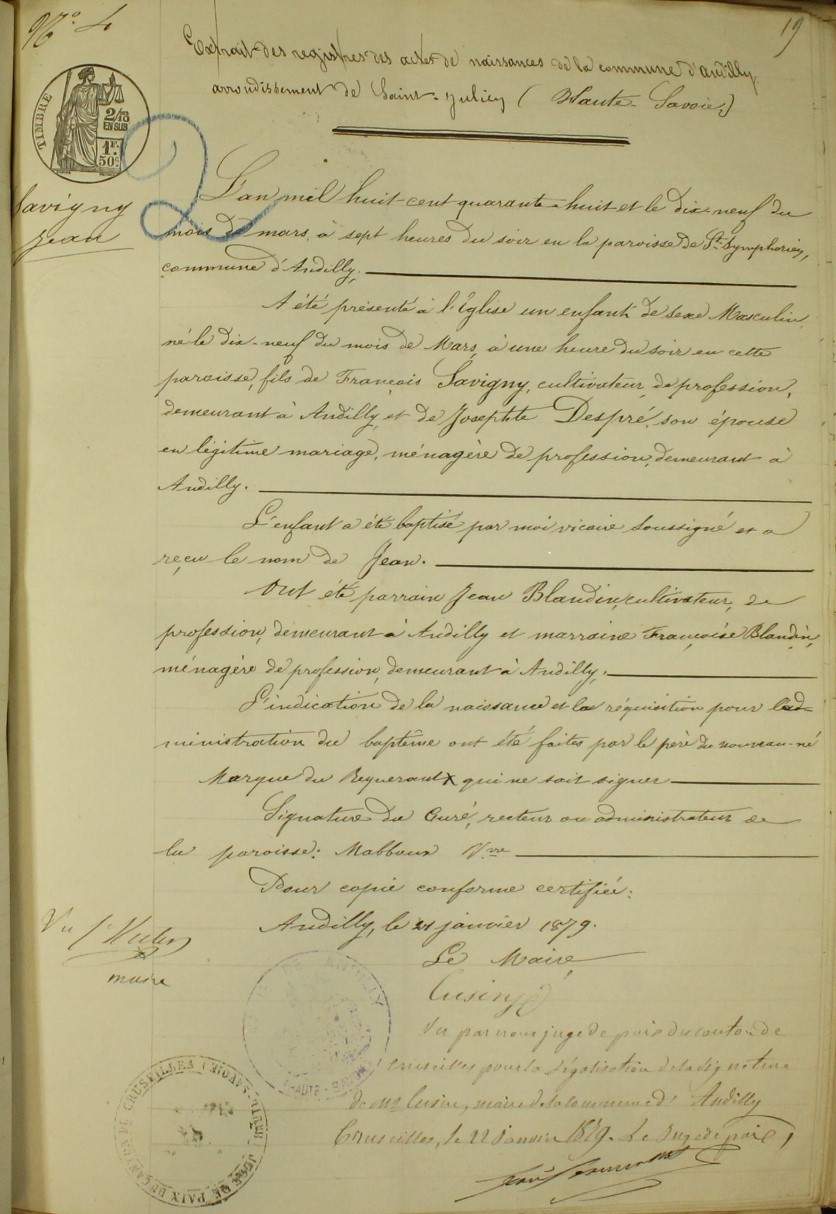 N.o 4
19
Extrait des registres des actes de naissances de la commune d'Andilly,
arrondissement de Saint-Julien (Haute-Savoie)
TIMBRE
2/10
EN SUS
1F.
50c
2
Savigny
Jean
L'an mil huit cent quarante-huit et le dix-neuf du
mois de mars, à sept heures du soir en la paroisse de St Symphorien,
commune d'Andilly.
A été présenté à l'Eglise un enfant de sexe Masculin
né le dix-neuf du mois de Mars, à une heure du soir en cette
paroisse, fils de François Savigny, cultivateur de profession,
demeurant à Andilly et de Josephte Despré, son épouse
en légitime mariage, ménagère de profession, demeurant à
Andilly.
L'enfant a été baptisé par moi vicaire soussigné et a
reçu le nom de Jean.
Ont été parrain Jean Blandin, cultivateur, de
profession, demeurant à Andilly et marraine Françoise Blandin,
ménagère de profession, demeurant à Andilly.
L'indication de la naissance et la réquisition pour l'ad-
ministration du baptême ont été faites par le père du nouveau-né
Marque du Requerant X qui ne sait signer
Signature du Curé, recteur ou administrateur de
la paroisse: Mabboux Vre
Pour copie conforme certifiée:
Andilly, le 21 janvier 1879.
Vu
maire
Le Maire
Cusin
Vu par nous juge de paix du canton de
Cruseilles pour la légalisation de la signature
de Mr Cusin, maire de la commune d'Andilly
Cruseilles, le 22 Janvier 1879. Le Juge de paix,
ANDILLY
HAUTE-SAVOIE
JUSTICE DE PAIX DU CANTON DE CRUSEILLES